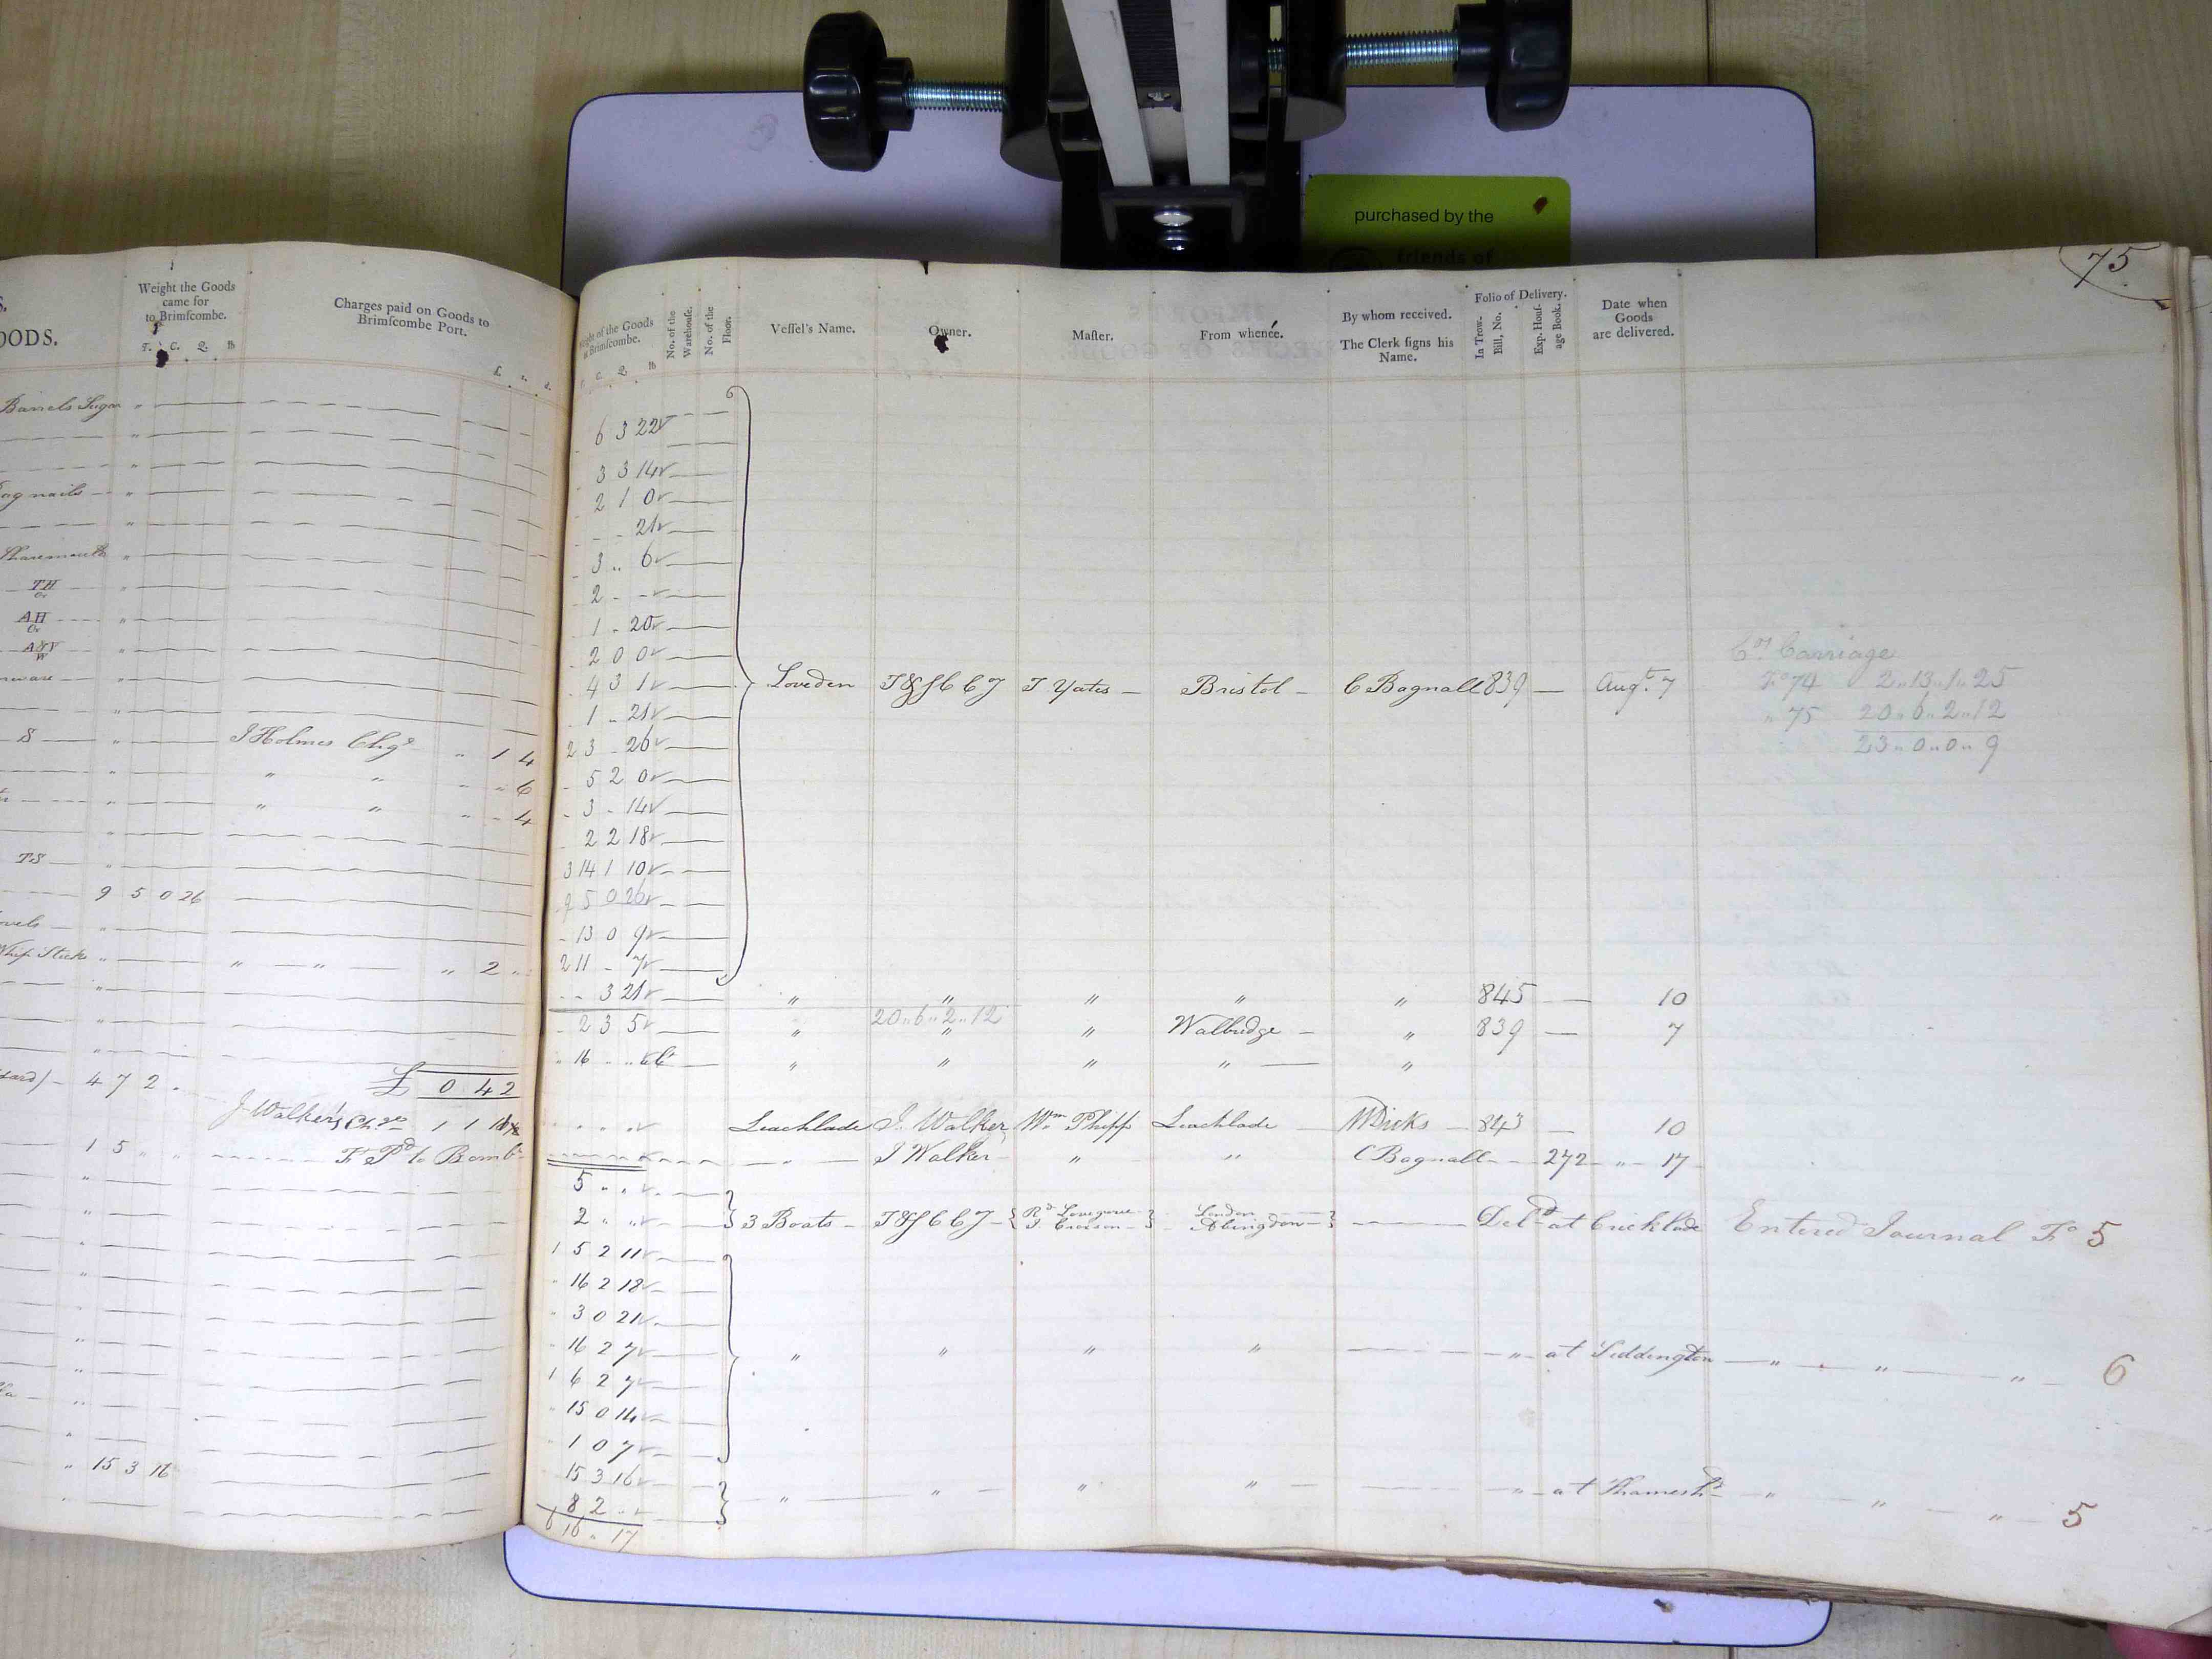 purchased by the
friends of
75
S.
OODS.
Weight the Goods
came for
to Brimſcombe.
T. C. Q. lb
Charges paid on Goods to
Brimſcombe Port.
£. s. d.
Barrels Sugar "
Bag nails "
Sharemouth "
TH
Or
AH
Or
A&V
W
S " J Holmes Chgs " 1 4
" " " " 6
" " " " 4
TS "
9 5 0 26
Whip Sticks " " " " 2 "
4 7 2 "
£ 0 4 2
J Walker's Chgs 1 1
1 5 " "
" 15 3 16
ight of the Goods
at Brimſcombe.
T. C. Q. lb
No. of the
Warehouſe.
No. of the
Floor.
Veſſel's Name.
Owner.
Maſter.
From whence.
By whom received.
The Clerk ſigns his
Name.
Folio of Delivery.
In Trow-
Bill, No.
Exp. Houſ-
age Book.
Date when
Goods
are delivered.
6 3 22
3 3 14
2 1 0
- - 21
3 .. 6
2 - -
1 - 20
2 0 0
4 3 1
1 .. 21
2 3 - 26
5 2 0
3 - 14
2 2 18
3 14 1 10
9 5 0 26
13 0 9
2 11 - 7
Loveden T&S C C J T Yates Bristol C Bagnall 839 Augt. 7
Cn Carriage
Fo 74 2..13..1..25
" 75 20..6..2..12
23..0..0..9
- - 3 21 " " " " " 845 10
20..6..2..12
- 2 3 5 " " " Walbridge " 839 7
" 16 " " " " " "
Leachlade J. Walker Wm Phipp Leachlade W Dicks 843 10
" J Walker " " C Bagnall 272 " 17
5 " "
2 " "
3 Boats T&S C C J Rd Lovegrove London
Abingdon
Deld at Cricklade Entered Journal Fo 5
1 5 2 11
" 16 2 18
" 3 0 21
" 16 2 7
1 6 2 7
" 15 0 14
1 0 7
" " " " " at Siddington " " " 6
15 3 16
8 2 "
" " " " " at Thameshd " " " 5
6 16 " 17